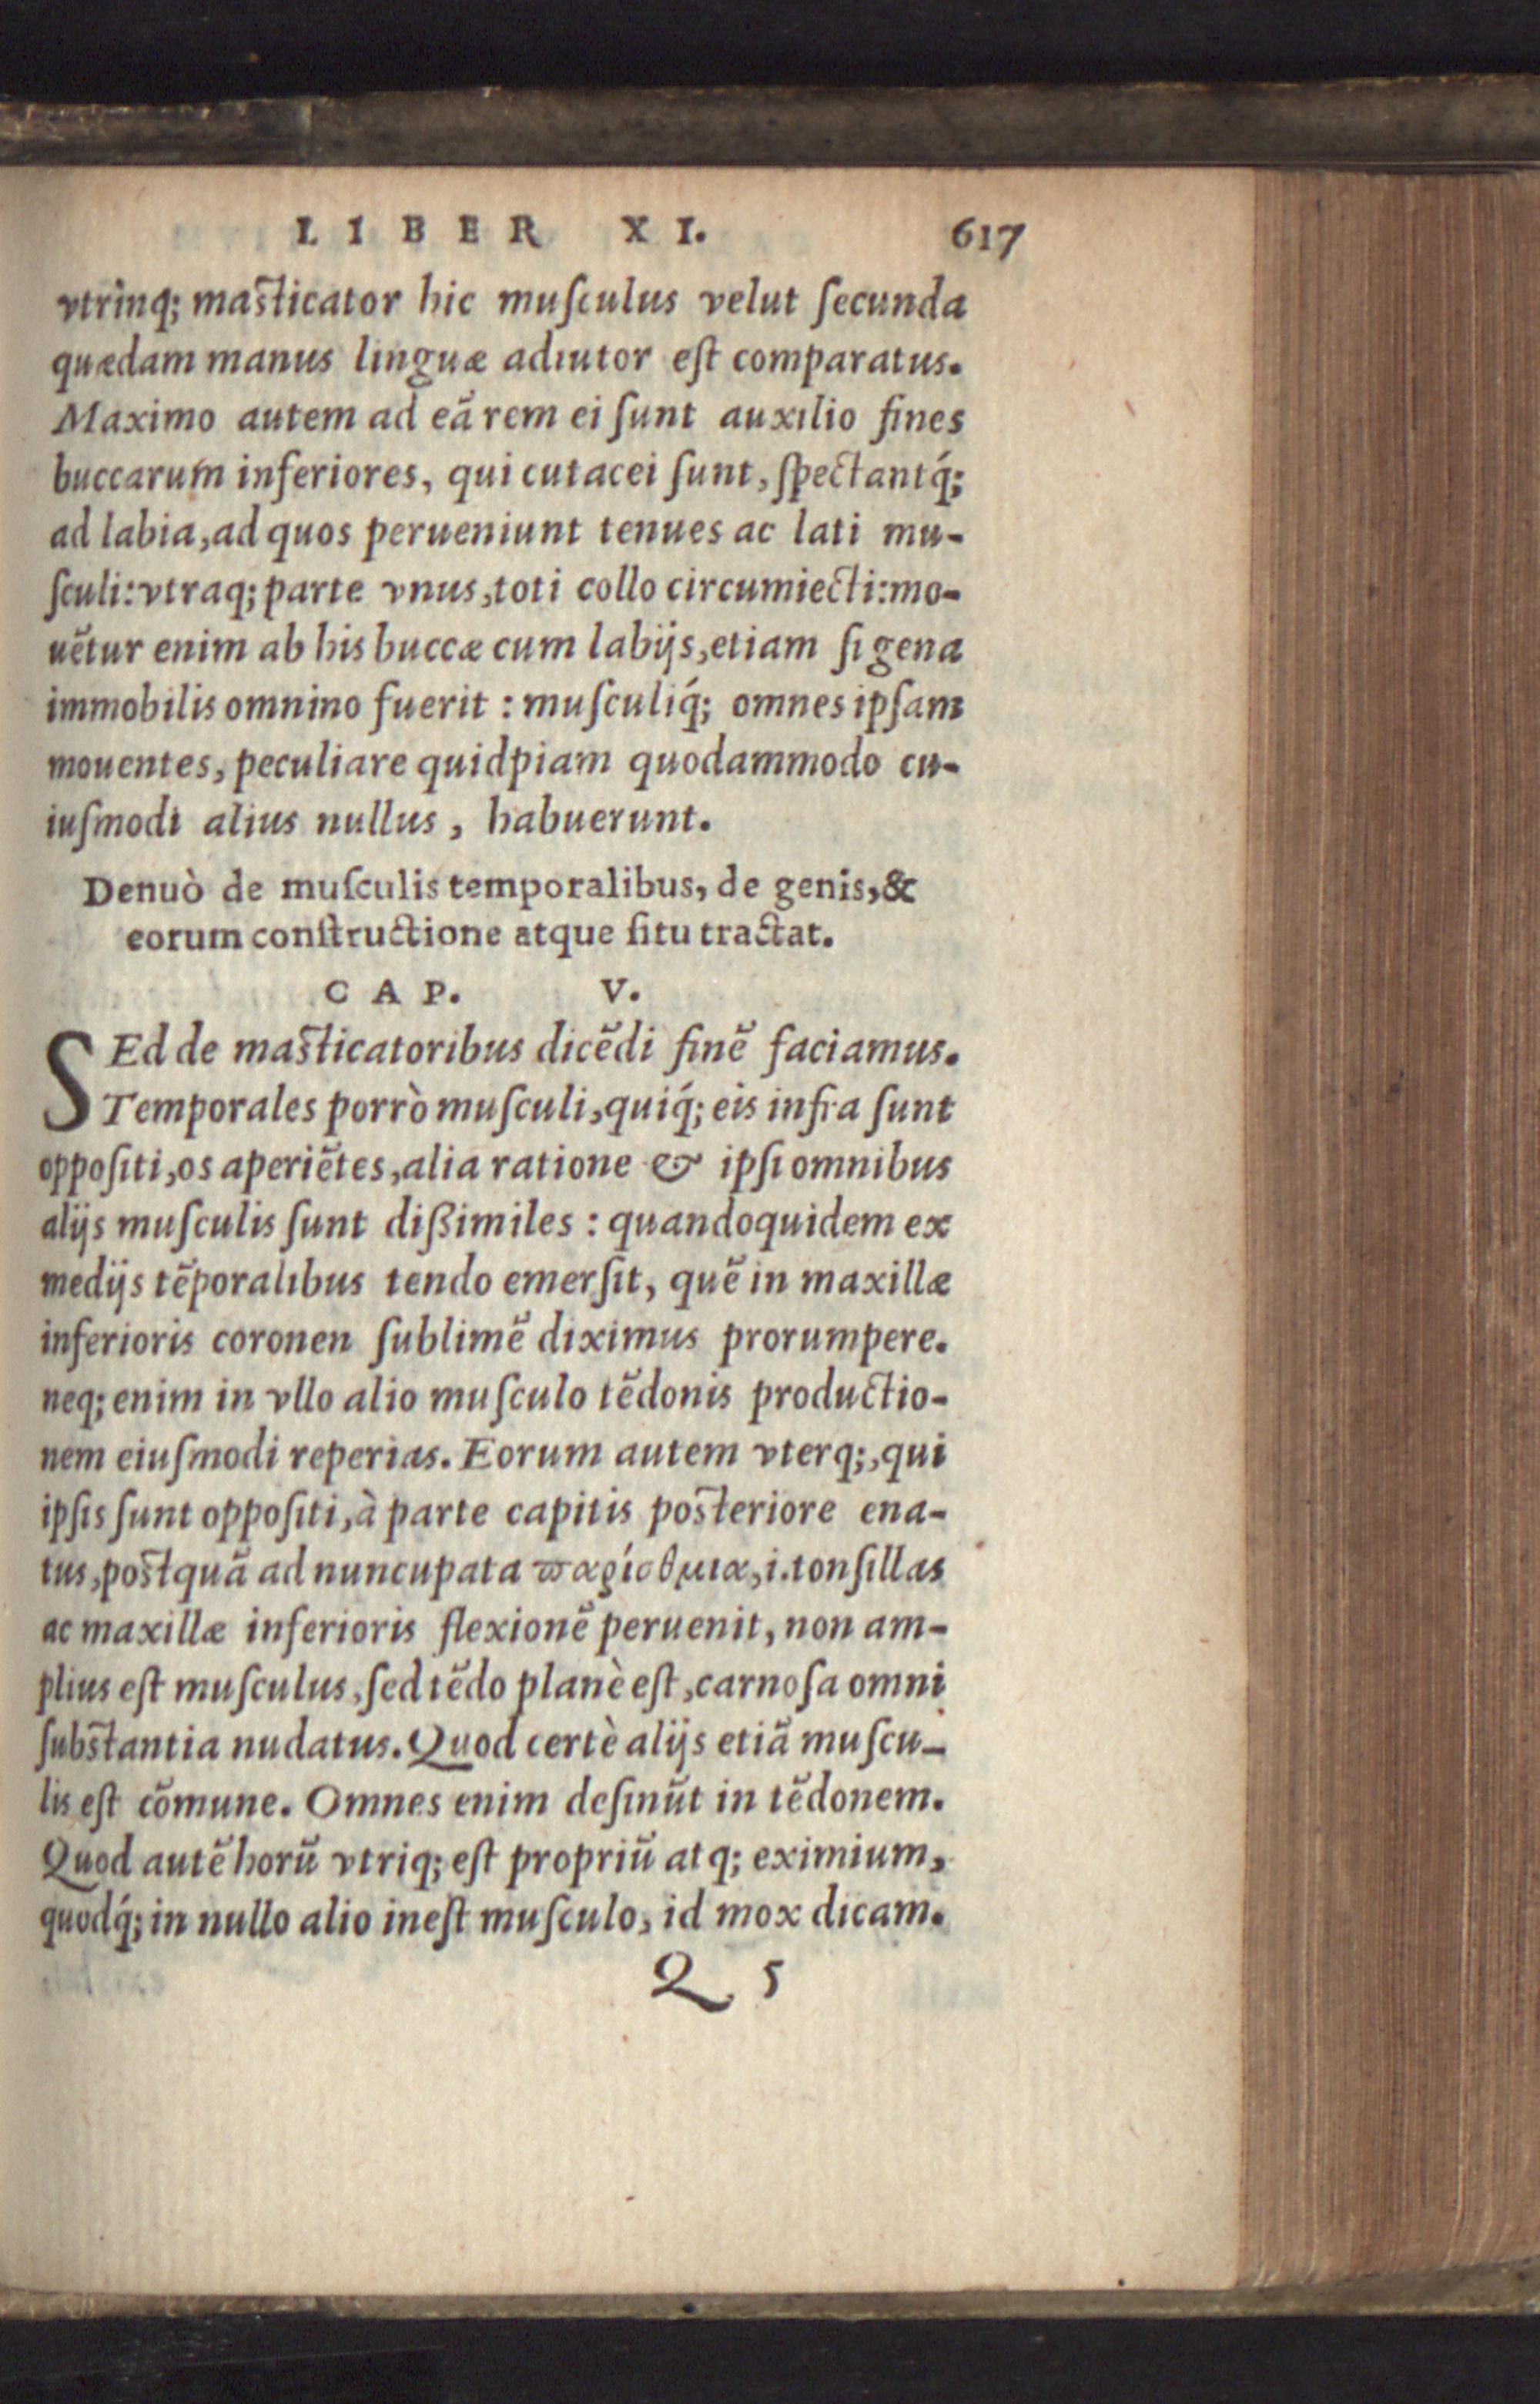 LIBER XI. 617
vtrinq; masticator hic muſculus velut ſecunda
quædam manus linguæ adiutor eſt comparatus.
Maximo autem ad eã rem ei ſunt auxilio fines
buccarum inferiores, qui cutacei ſunt, ſpectantq́;
ad labia, ad quos perueniunt tenues ac lati mu-
ſculi: vtraq; parte vnus, toti collo circumiecti: mo-
uẽtur enim ab his buccæ cum labijs, etiam ſi gena
immobilis omnino fuerit : muſculiq́; omnes ipſam
mouentes, peculiare quidpiam quodammodo cu-
iuſmodi alius nullus, habuerunt.
Denuò de muſculis temporalibus, de genis, &
eorum conſtructione atque ſitu tractat.
CAP. V.
SEd de masticatoribus dicẽdi finẽ faciamus.
Temporales porrò muſculi, quiq́; eis infra ſunt
oppoſiti, os aperiẽtes, alia ratione & ipſi omnibus
alijs muſculis ſunt dißimiles : quandoquidem ex
medijs tẽporalibus tendo emerſit, quẽ in maxillæ
inferioris coronen ſublimẽ diximus prorumpere.
neq; enim in vllo alio muſculo tẽdonis productio-
nem eiuſmodi reperias. Eorum autem vterq;, qui
ipſis ſunt oppoſiti, à parte capitis posteriore ena-
tus, postquã ad nuncupata παρίσθμια, i. tonſillas
ac maxillæ inferioris flexionẽ peruenit, non am-
plius eſt muſculus, ſed tẽdo planè eſt, carnoſa omni
ſubstantia nudatus. Quod certè alijs etiã muſcu-
lis eſt cõmune. Omnes enim deſinũt in tẽdonem.
Quod autẽ horũ vtriq; eſt propriũ atq; eximium,
quodq́; in nullo alio ineſt muſculo, id mox dicam.
Q 5